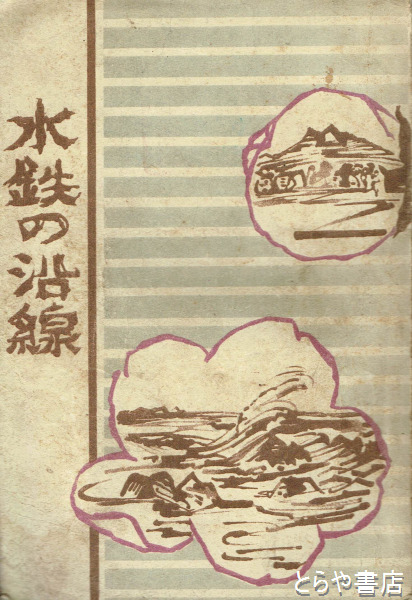 水鉄の沿線
とらや書店